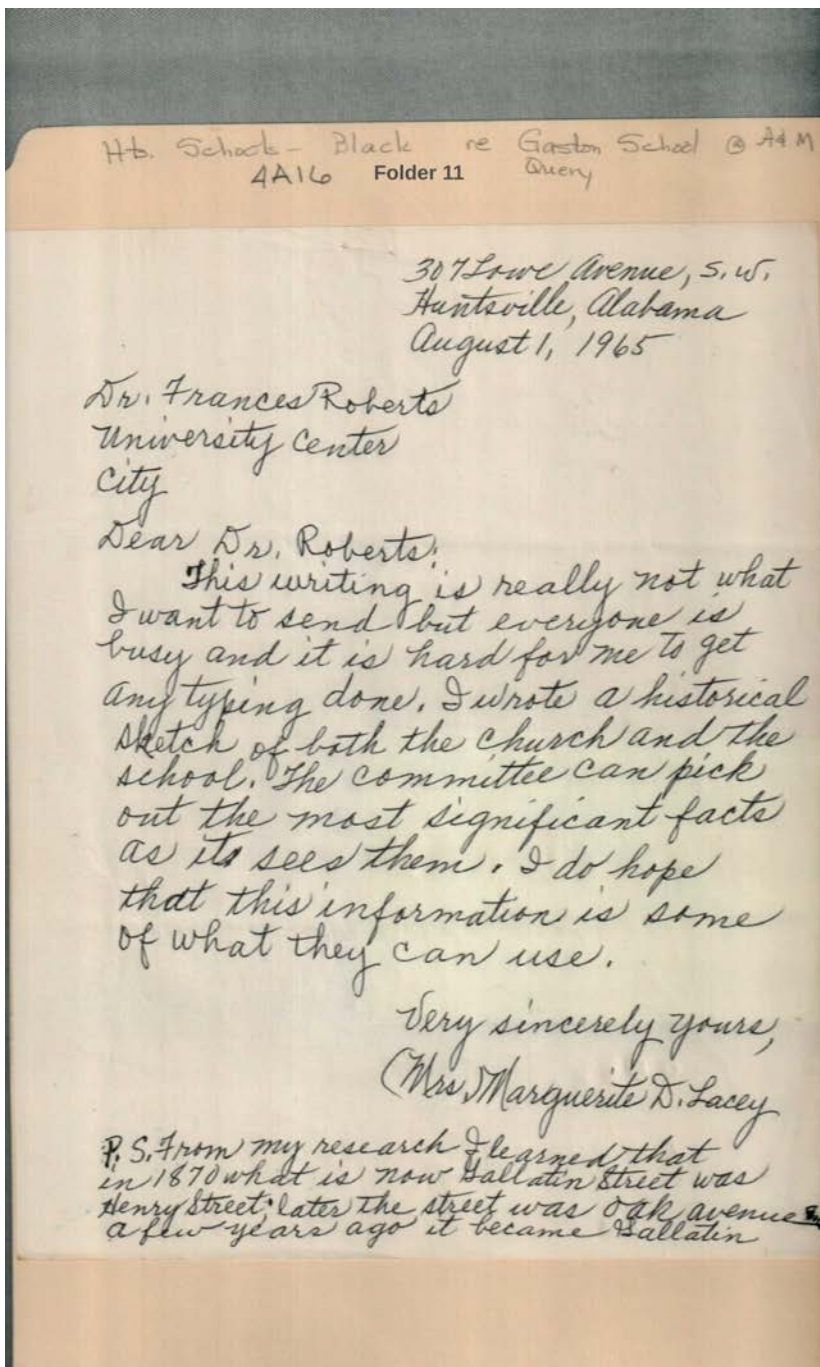 Hb. Schools - Black re Gaston School @ A&M
4A16 Folder 11 Query
307 Lowe Avenue, S.W.
Huntsville, Alabama
August 1, 1965
Dr. Frances Roberts
University Center
City
Dear Dr. Roberts:
This writing is really not what
I want to send but everyone is
busy and it is hard for me to get
any typing done. I wrote a historical
sketch of both the church and the
school. The committee can pick
out the most significant facts
as its sees them. I do hope
that this information is some
of what they can use.
Very sincerely yours,
(Mrs.) Marguerite D. Lacey
P.S. From my research I learned that
in 1870 what is now Gallatin Street was
Henry Street; later the street was Oak avenue
a few years ago it became Gallatin